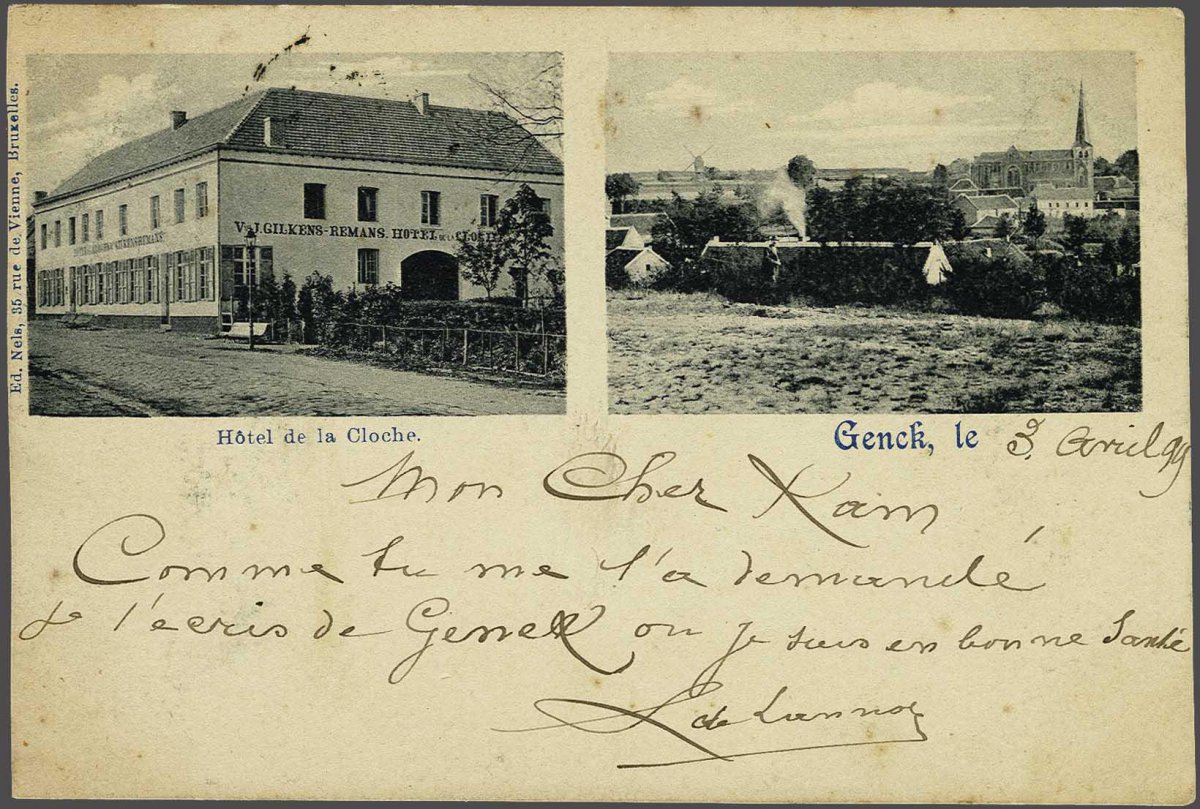 Ed. Nels, 35 rue de Vienne, Bruxelles.
V. J. GILKENS-REMANS. HOTEL DE LA CLOCHE
GILKENS-REMANS.
Hôtel de la Cloche.
Genck, le 3 Avril 99
Mon Cher Xain
Comme tu me l'a demandé
je t'écris de Genck ou je suis en bonne Santé
L de Lannoy